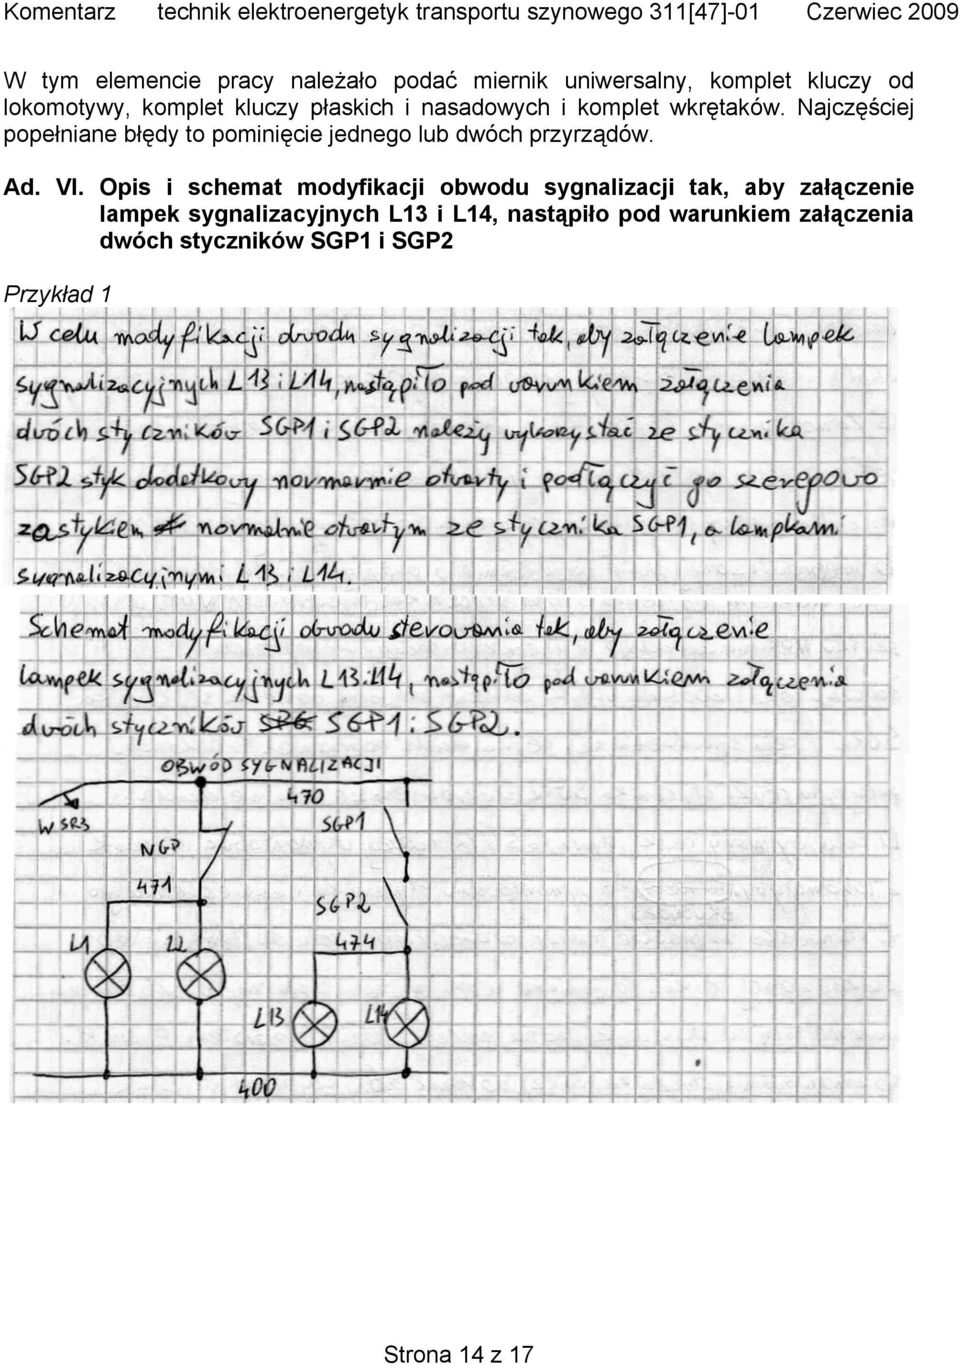 Komentarz technik elektroenergetyk transportu szynowego 311[47]-01 Czerwiec 2009
W tym elemencie pracy należało podać miernik uniwersalny, komplet kluczy od
lokomotywy, komplet kluczy płaskich i nasadowych i komplet wkrętaków. Najczęściej
popełniane błędy to pominięcie jednego lub dwóch przyrządów.
Ad. VI. Opis i schemat modyfikacji obwodu sygnalizacji tak, aby załączenie
lampek sygnalizacyjnych L13 i L14, nastąpiło pod warunkiem załączenia
dwóch styczników SGP1 i SGP2
Przykład 1
W celu modyfikacji obwodu sygnalizacji tak, aby załączenie lampek
sygnalizacyjnych L13 i L14, nastąpiło pod warunkiem załączenia
dwóch styczników SGP1 i SGP2 należy wykorzystać ze stycznika
SGP2 styk dodatkowy normarmie otwarty i podłączyć go szeregowo
za stykiem normalnie otwartym ze stycznika SGP1, a lampkami
sygnalizacyjnymi L13 i L14.
Schemat modyfikacji obwodu sterowania tak, aby załączenie
lampek sygnalizacyjnych L13 i L14, nastąpiło pod warunkiem załączenia
dwóch styczników SPG SGP1 i SGP2.
OBWÓD SYGNALIZACJI
470
W SR3
SGP1
NGP
471
SGP2
L1 L2 474
L13 L14
400
Strona 14 z 17